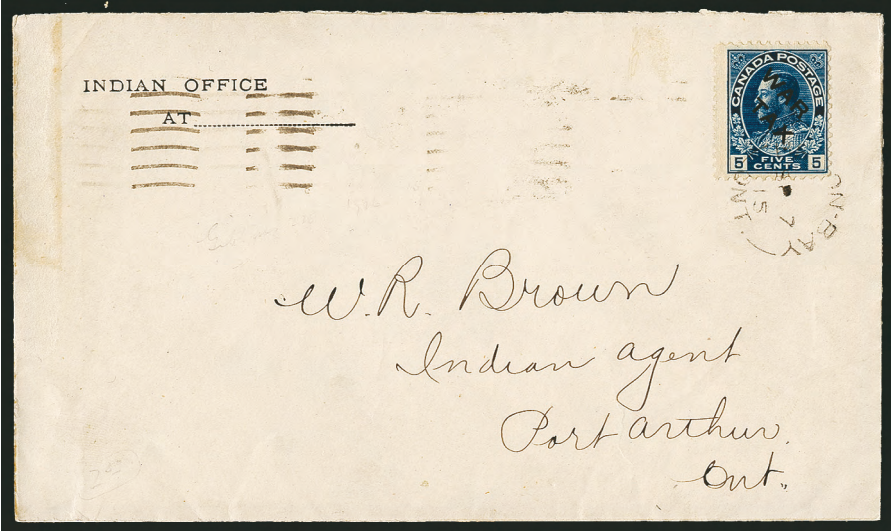 INDIAN OFFICE
AT
CANADA POSTAGE
WAR
TAX
5 FIVE CENTS 5
ON·BAY
7
15
ONT
W. R. Brown
Indian agent
Port Arthur.
Ont.